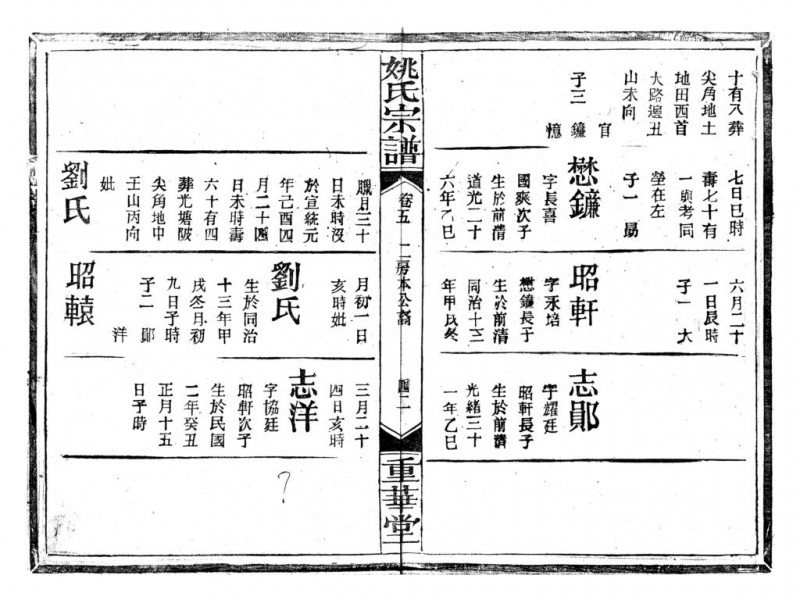 十有八葬
尖角地土
地田西首
大路邊丑
山未向
子三
官
鐮
憶
七日巳時
壽七十有
一與考同
塋在左
子一
勗
懋鐮
字長喜
國爽次子
生於前清
道光二十
六年乙巳
六月二十
一日長時
子一
大
昭軒
字禾培
懋鐮長子
生於前清
同治十三
年甲戌冬
志鄖
字耀廷
昭軒長子
生於前清
光緒三十
一年乙巳
姚氏宗譜
卷五
二房本公裔
四二
重華堂
臘月三十
日未時沒
於宣統元
年己酉四
月二十四
日未時壽
六十有四
葬光塘陂
尖角地中
壬山丙向
妣
劉氏
月初一日
亥時妣
劉氏
生於同治
十三年甲
戌冬月初
九日子時
子二
鄖
洋
昭轅
三月二十
四日亥時
志洋
字協廷
昭軒次子
生於民國
二年癸丑
正月十五
日子時
?